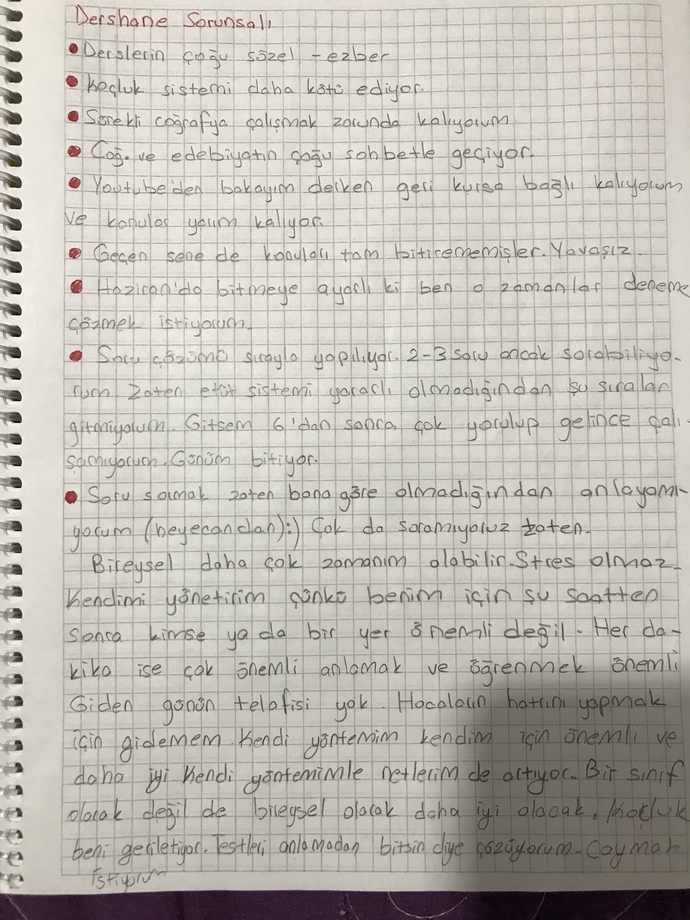 Dershane Sorunsalı
• Derslerin çoğu sözel - ezber
• Koçluk sistemi daha kötü ediyor.
• Sürekli coğrafya çalışmak zorunda kalıyorum
• Coğ. ve edebiyatın çoğu sohbetle geçiyor.
• Youtube'den bakayım derken geri kursa bağlı kalıyorum
ve konular yarım kalıyor.
• Geçen sene de konuları tam bitirememişler. Yavaşız.
• Haziran'da bitmeye ayarlı ki ben o zamanlar deneme
çözmek istiyorum.
• Soru çözümü sırayla yapılıyor. 2-3 soru ancak sorabiliyo-
rum. Zaten etüt sistemi yararlı olmadığından şu sıralar
gitmiyorum. Gitsem 6'dan sonra çok yorulup gelince çalı-
şamıyorum. Günüm bitiyor.
• Soru sormak zaten bana göre olmadığından anlayamı-
yorum (heyecandan):) Çok da soramıyoruz zaten.
Bireysel daha çok zamanım olabilir. Stres olmaz.
Kendimi yönetirim çünkü benim için şu saatten
sonra kimse ya da bir yer önemli değil. Her da-
kika ise çok önemli anlamak ve öğrenmek önemli
Giden günün telafisi yok. Hocaların hatrını yapmak
için gidemem. Kendi yöntemim kendim için önemli ve
daha iyi Kendi yöntemimle netlerim de artıyor. Bir sınıf
olarak değil de bireysel olarak daha iyi olacak. Koçluk
beni geriletiyor. Testleri anlamadan bitsin diye çözüyorum. Caymak
istiyorum